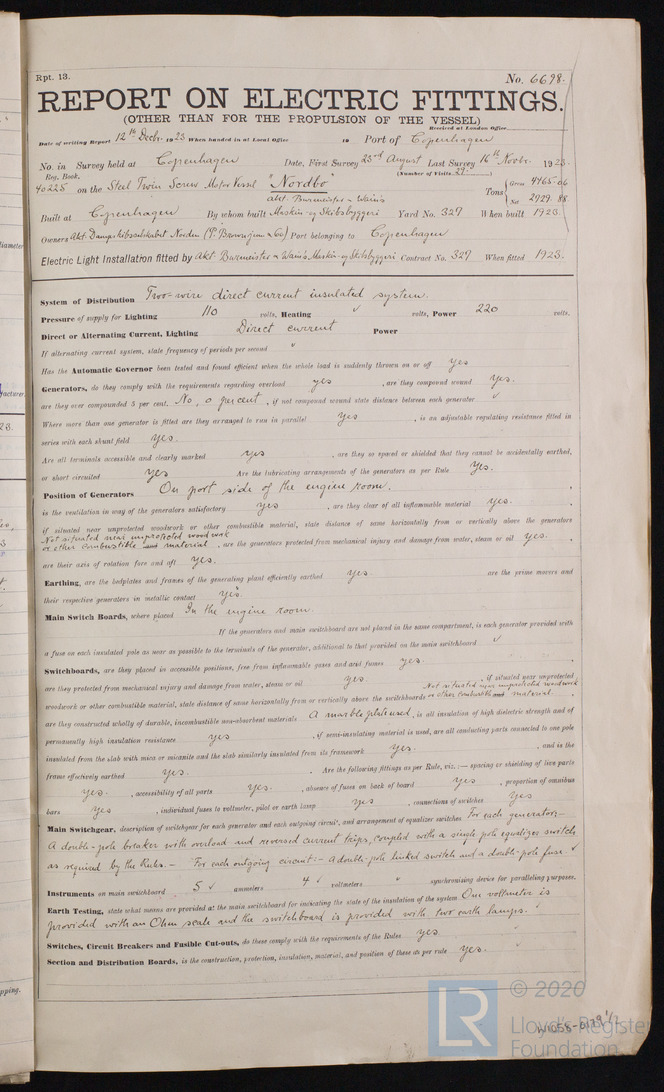 Rpt. 13.
No. 6698.
REPORT ON ELECTRIC FITTINGS.
(OTHER THAN FOR THE PROPULSION OF THE VESSEL)
Received at London Office
Date of writing Report 12th Decbr. 1923 When handed in at Local Office 19 Port of Copenhagen
No. in Survey held at Copenhagen Date, First Survey 23rd August Last Survey 16th Novbr. 1923.
Reg. Book. (Number of Visits 29.)
40225 on the Steel Twin Screw Motor Vessel "Nordbo" Tons Gross 4465.06
Net 2929.88
Akt. Burmeister & Wain's
Built at Copenhagen By whom built Maskin- og Skibsbyggeri Yard No. 327 When built 1923.
Owners Akt Dampskibsselskabet Norden (P. Brown jun & Co) Port belonging to Copenhagen
Electric Light Installation fitted by Akt Burmeister & Wain's Maskin- og Skibsbyggeri Contract No. 327 When fitted 1923.
System of Distribution Two-wire direct current insulated system.
Pressure of supply for Lighting 110 volts, Heating ✓ volts, Power 220 volts.
Direct or Alternating Current, Lighting Direct current Power
If alternating current system, state frequency of periods per second ✓
Has the Automatic Governor been tested and found efficient when the whole load is suddenly thrown on or off yes
Generators, do they comply with the requirements regarding overload yes , are they compound wound yes.
are they over compounded 5 per cent. No, 0 per cent , if not compound wound state distance between each generator ✓
Where more than one generator is fitted are they arranged to run in parallel yes , is an adjustable regulating resistance fitted in
series with each shunt field yes.
Are all terminals accessible and clearly marked yes , are they so spaced or shielded that they cannot be accidentally earthed,
or short circuited yes Are the lubricating arrangements of the generators as per Rule yes.
Position of Generators On port side of the engine room.
is the ventilation in way of the generators satisfactory yes , are they clear of all inflammable material yes.
if situated near unprotected woodwork or other combustible material, state distance of same horizontally from or vertically above the generators
Not situated near unprotected woodwork
or other combustible material , are the generators protected from mechanical injury and damage from water, steam or oil yes.
are their axis of rotation fore and aft yes.
Earthing, are the bedplates and frames of the generating plant efficiently earthed yes are the prime movers and
their respective generators in metallic contact yes
Main Switch Boards, where placed In the engine room.
If the generators and main switchboard are not placed in the same compartment, is each generator provided with
a fuse on each insulated pole as near as possible to the terminals of the generator, additional to that provided on the main switchboard ✓
Switchboards, are they placed in accessible positions, free from inflammable gases and acid fumes yes.
are they protected from mechanical injury and damage from water, steam or oil yes. , if situated near unprotected
Not situated near unprotected woodwork
woodwork or other combustible material, state distance of same horizontally from or vertically above the switchboards or other combustible material
are they constructed wholly of durable, incombustible non-absorbent materials A marble plate used , is all insulation of high dielectric strength and of
permanently high insulation resistance yes , if semi-insulating material is used, are all conducting parts connected to one pole
insulated from the slab with mica or micanite and the slab similarly insulated from its framework yes. , and is the
frame effectively earthed yes. Are the following fittings as per Rule, viz.:— spacing or shielding of live parts
yes. , accessibility of all parts yes. , absence of fuses on back of board yes , proportion of omnibus
bars yes , individual fuses to voltmeter, pilot or earth lamp yes , connections of switches yes
Main Switchgear, description of switchgear for each generator and each outgoing circuit, and arrangement of equalizer switches For each generator:—
A double-pole breaker with overload and reversed current trips, coupled with a single pole equalizer switch
as required by the Rules. — For each outgoing circuit:— A double-pole linked switch and a double-pole fuse. ✓
Instruments on main switchboard 5 ✓ ammeters 4 ✓ voltmeters synchronising device for paralleling purposes.
Earth Testing, state what means are provided at the main switchboard for indicating the state of the insulation of the system One voltmeter is
provided with an Ohm scale and the switchboard is provided with two earth lamps.
Switches, Circuit Breakers and Fusible Cut-outs, do these comply with the requirements of the Rules yes.
Section and Distribution Boards, is the construction, protection, insulation, material, and position of these as per rule yes.
© 2020
LR
Lloyd's Register
Foundation
W1056-0179 1/2